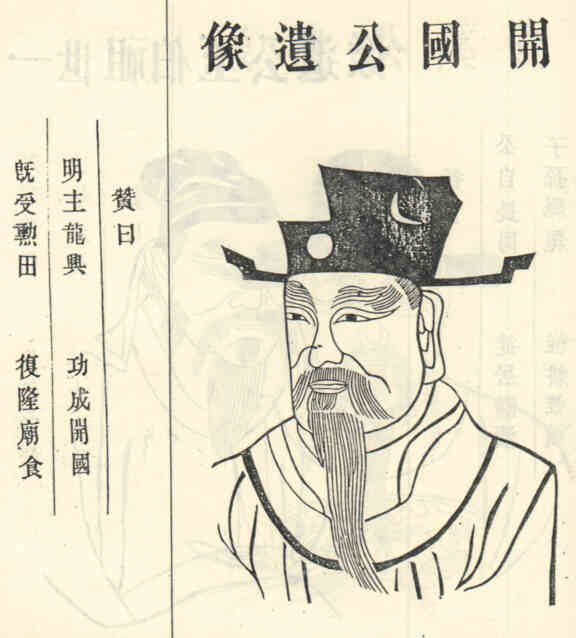 開國公遺像
贊曰
明主龍興 功成開國
既受勲田 復隆廟食